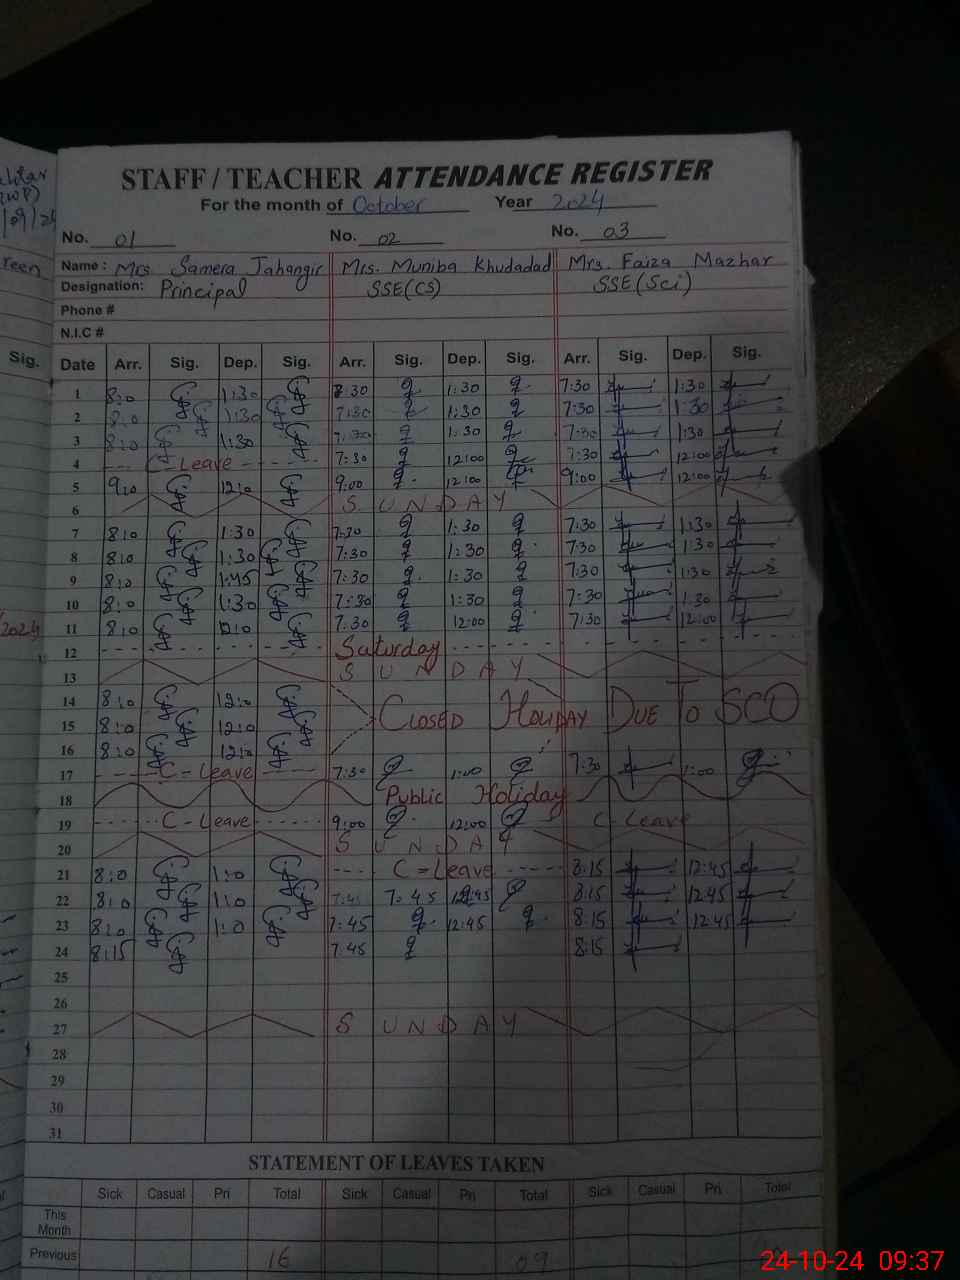 STAFF / TEACHER ATTENDANCE REGISTER
For the month of October Year 2024
No. 01 No. 02 No. 03
Name : Mrs. Samera Jahangir Mrs. Muniba Khudadad Mrs. Faiza Mazhar
Designation: Principal SSE(CS) SSE(Sci)
Phone #
N.I.C #
Sig. Date Arr. Sig. Dep. Sig. Arr. Sig. Dep. Sig. Arr. Sig. Dep. Sig.
1 8:0 1:30 7:30 1:30 7:30 1:30
2 8:0 1:30 7:30 1:30 7:30 1:30
3 8:0 1:30 7:30 1:30 7:30 1:30
4 C-Leave 7:30 12:00 7:30 12:00
5 9:0 12:0 9:00 12:00 9:00 12:00
6 SUNDAY
7 8:0 1:30 7:30 1:30 7:30 1:30
8 8:0 1:30 7:30 1:30 7:30 1:30
9 8:0 1:45 7:30 1:30 7:30 1:30
10 8:0 1:30 7:30 1:30 7:30 1:30
11 8:0 7:30 12:00 7:30 12:00
12 Saturday
13 SUNDAY
14 8:0 12:0
15 8:0 12:0 CLOSED HOLIDAY DUE TO SCO
16 8:0 12:0
17 C-Leave 7:30 1:00 7:30 1:00
18 Public Holiday
19 C-Leave 9:00 12:00 C-Leave
20 SUNDAY
21 8:0 1:0 C-Leave 8:15 12:45
22 8:0 1:0 7:45 7:45 12:45 8:15 12:45
23 8:0 1:0 7:45 12:45 8:15 12:45
24 8:15 7:45 8:15
25
26
27 SUNDAY
28
29
30
31
STATEMENT OF LEAVES TAKEN
Sick Casual Pri Total Sick Casual Pri Total Sick Casual Pri Total
This Month
Previous 16 09
24-10-24 09:37